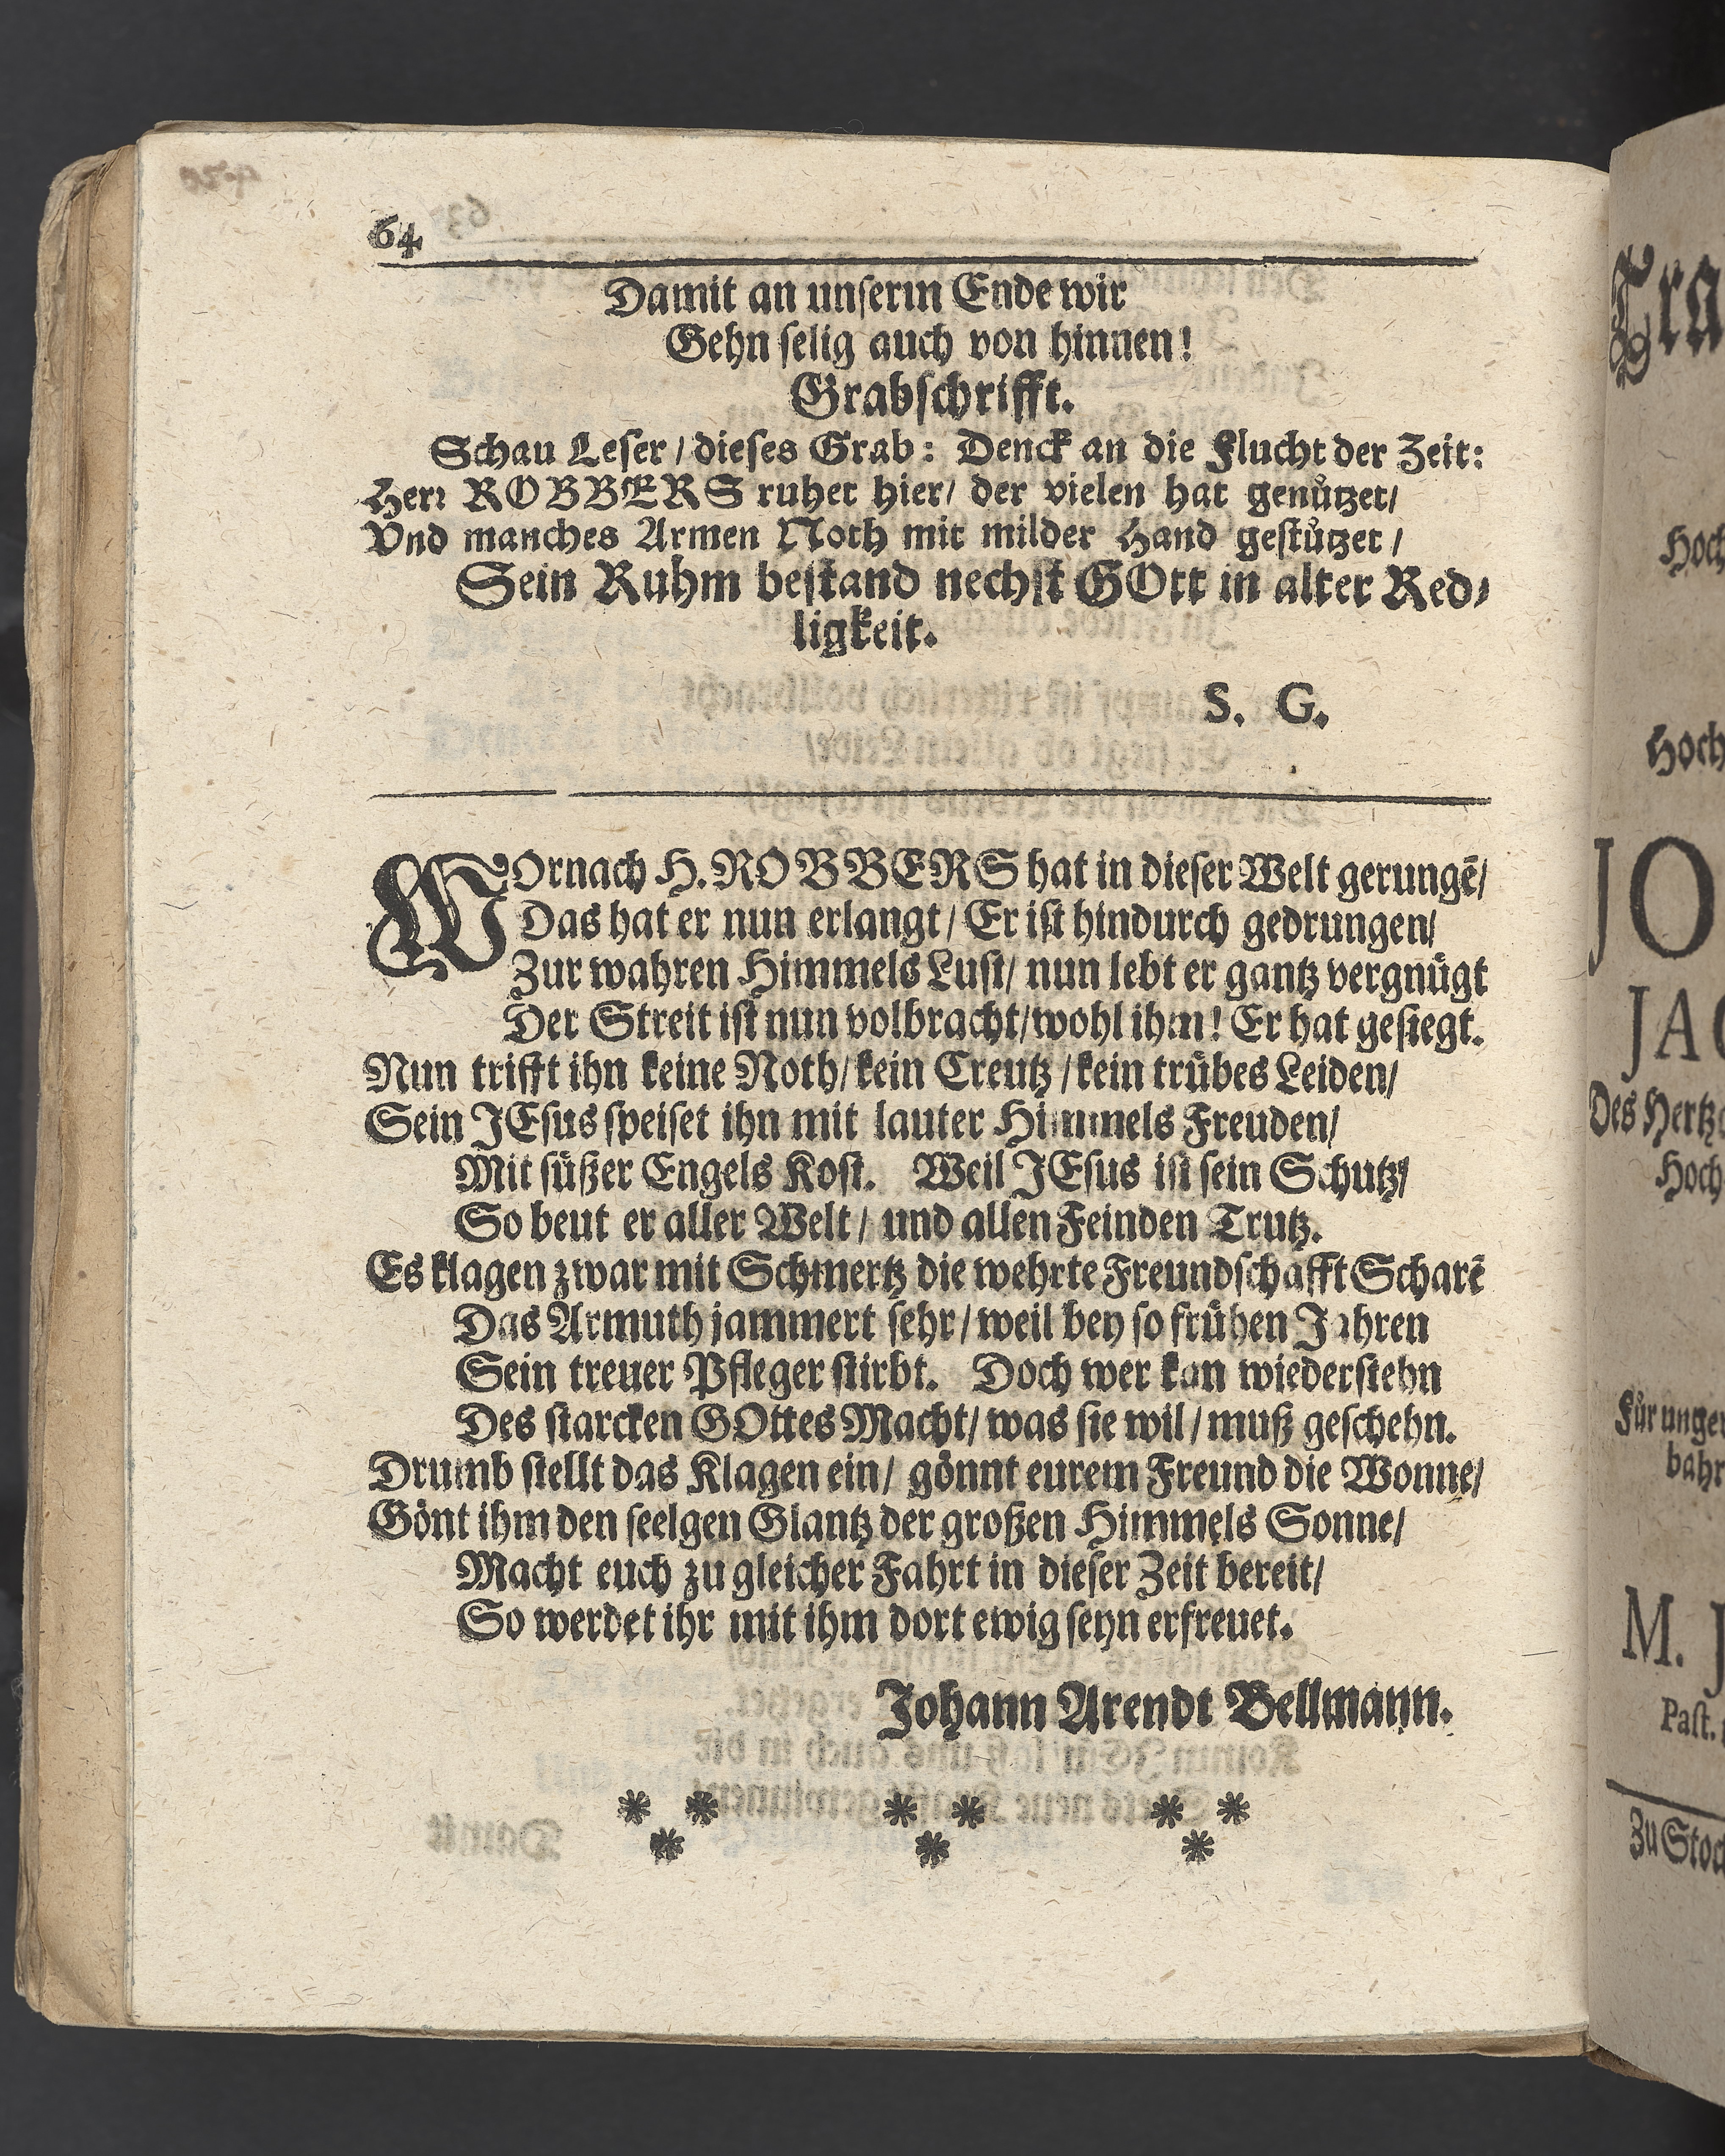 64
Damit an unserm Ende wir
Gehn selig auch von hinnen!
Grabschrifft.
Schau Leser / dieses Grab: Denck an die Flucht der Zeit:
Herr ROBBERS ruhet hier / der vielen hat genützet /
Vnd manches Armen Noth mit milder Hand gestützet /
Sein Ruhm bestand nechst GOtt in alter Red-
ligkeit.
S. G.
WOrnach H. ROBBERS hat in dieser Welt gerungē /
Das hat er nun erlangt / Er ist hindurch gedrungen /
Zur wahren Himmels Lust / nun lebt er gantz vergnügt
Der Streit ist nun volbracht / wohl ihm! Er hat gesiegt.
Nun trifft ihn keine Noth / kein Creutz / kein trübes Leiden /
Sein JEsus speiset ihn mit lauter Himmels Freuden /
Mit süßer Engels Kost. Weil JEsus ist sein Schutz /
So beut er aller Welt / und allen Feinden Trutz.
Es klagen zwar mit Schmertz die wehrte Freundschafft Scharē
Das Armuth jammert sehr / weil bey so frühen Jahren
Sein treuer Pfleger stirbt. Doch wer kan wiederstehn
Des starcken GOttes Macht / was sie wil / muß geschehn.
Drumb stellt das Klagen ein / gönnt eurem Freund die Wonne /
Gönt ihm den seelgen Glantz der großen Himmels Sonne /
Macht euch zu gleicher Fahrt in dieser Zeit bereit /
So werdet ihr mit ihm dort ewig seyn erfreuet.
Johann Arendt Bellmann.
Tra
Hoch
Hoch
JO
JAC
Des Hertzo
Hoch
Für unge
bahr
M. J
Past.
Zu Stoc